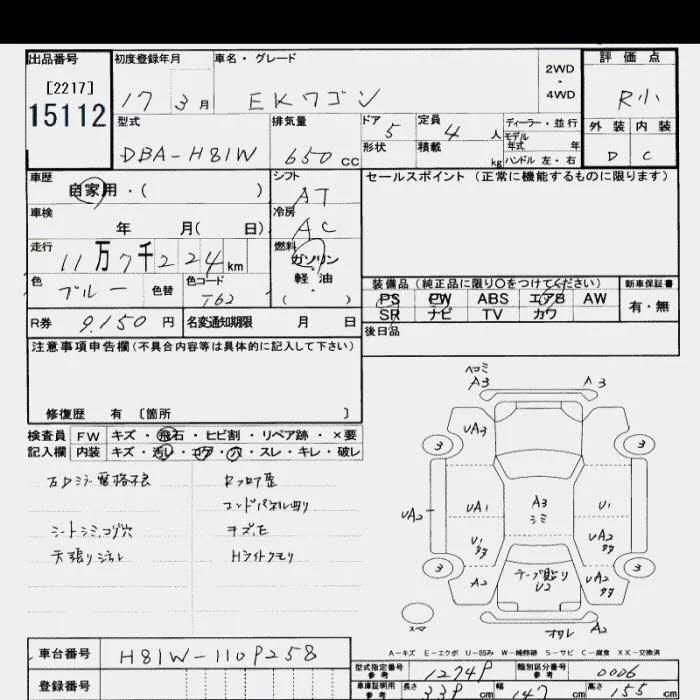 出品番号 初度登録年月 車名・グレード 2WD・4WD 評価点
[2217]
15112
17 3月 EKワゴン R小
型式 排気量 ドア 定員 ディーラー・並行 外装 内装
5 4人 モデル年式 年
DBA-H81W 650cc 形状 積載 kg ハンドル 左・右 D C
車歴 シフト セールスポイント (正常に機能するものに限ります)
自家用・( ) AT
車検 冷房
年 月( 日) AC
走行 燃料
11万7千224km ガソリン・軽油
色 色替 色コード ( )
ブルー T62
装備品 (純正品に限り○をつけてください) 新車保証書
PS PW ABS エアB AW 有・無
SR ナビ TV カワ
R券 9,150円 名変通知期限 月 日 後日品
注意事項申告欄 (不具合内容等は具体的に記入して下さい)
修復歴 有 〔箇所 〕
検査員記入欄 FW キズ・飛石・ヒビ割・リペア跡・×要
内装 キズ・汚レ・コゲ・穴・スレ・キレ・破レ
右Dミラー電格不良 Rフロア歪
シートシミ、コゲ穴
天張り Hライトクモリ
ヘコミ
A3 A3
UA3
3 3
UA2 UA1 A3 シミ U1
U1 UA2
3 3
A2 テープ貼り U2 UA2
スペア A2
A-キズ E-エクボ U-凹み W-補修跡 S-サビ C-腐食 XX-交換済
車台番号 H81W-110P258
登録番号
型式指定番号 参考 1274P 類別区分番号 参考 0006
車庫証明用 参考 長さ 33Pcm 幅 147cm 高さ 155cm